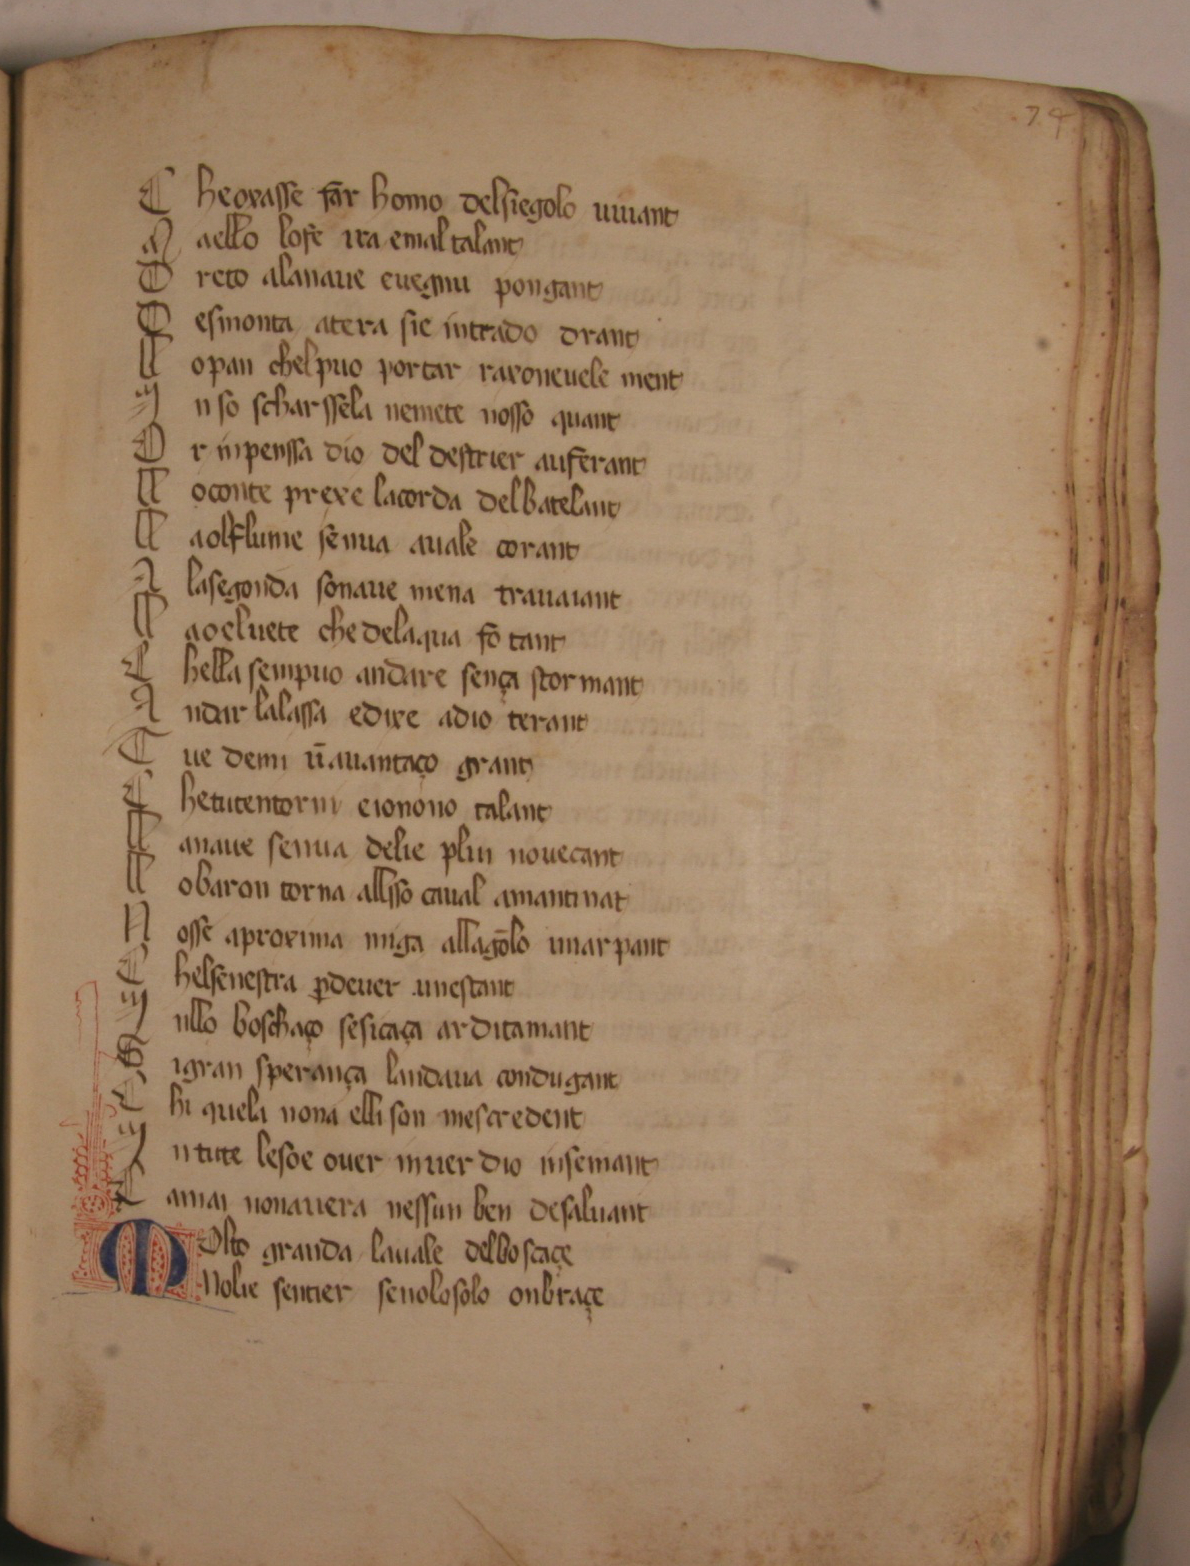 74
C heoxasse far homo delsiegolo uiuant
M aello lofe ira emal talant
D reto alanaue euegnu pongant
D esmonta atera sie intrado drant
L opan chelpuo portar raxoneuele ment
I n so scharssela nemete nosso quant
O r inpenssa dio del destrier auferant
L oconte prexe lacorda delbatelant
L aolflume senua auale corant
A lasegonda sonaue mena trauaiant
L aoeluete chedelaqua fo tant
C hella sempuo andare sença stormant
A ndar lalassa edixe adio terant
T ue demi un auantaço grant
C hetutentorni eionono talant
L anaue senua delie plui nouecant
L obaron torna allsso caual amantinat
N osse aproxima miga allagolo unarpant
C helsenestra pdeuer unestant
I nllo boschaço sesicaça arditamant
D igran sperança landaua condugant
C hi quela nona elli son mescredent
I ntute lesoe ouer inuer dio insemant
C amai nonauera nessun ben desaluant
M Olto granda lauale delboscaçe
Nolie sentier senolosolo onbraçe